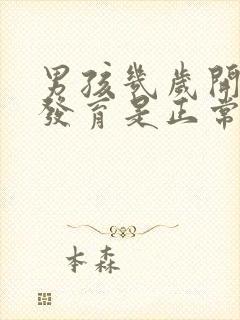 男孩幾歲開
發育是正常
本森